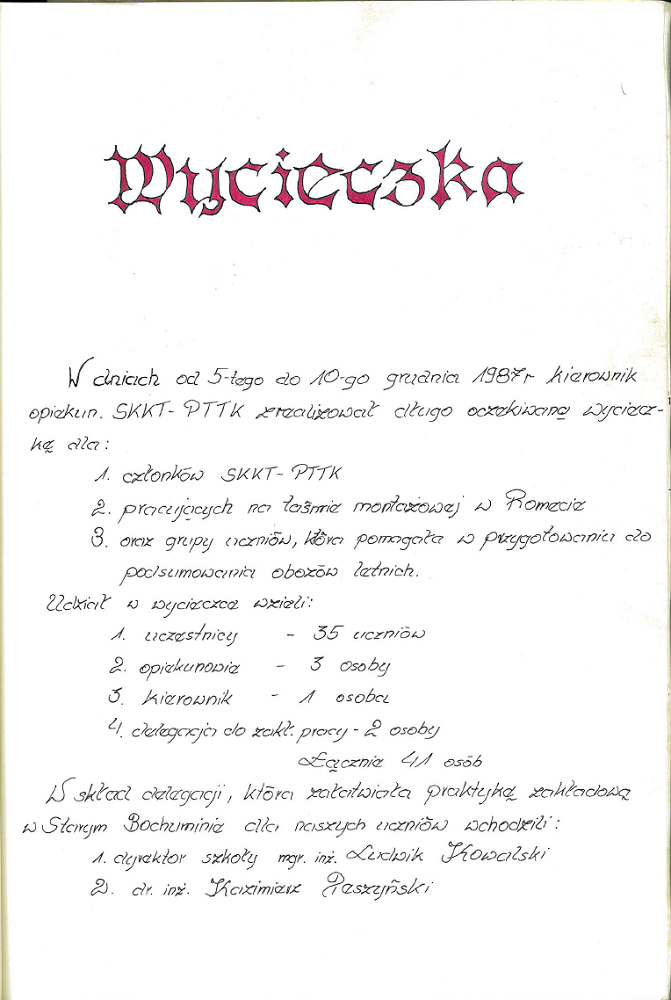 Wycieczka
W dniach od 5-tego do 10-go grudnia 1987r kierownik
opiekun. SKKT-PTTK zrealizował długo oczekiwaną wyciecz-
kę dla:
1. członków SKKT-PTTK
2. pracujących na taśmie montażowej w Romecie
3. oraz grupy uczniów, która pomagała w przygotowaniu do
podsumowania obozów letnich.
Udział w wycieczce wzięli:
1. uczestnicy - 35 uczniów
2. opiekunowie - 3 osoby
3. kierownik - 1 osoba
4. delegacja do zakł. pracy - 2 osoby
Łącznie 41 osób
W skład delegacji, która załatwiała praktykę zakładową
w Starym Bochuminie dla naszych uczniów wchodzili:
1. dyrektor szkoły mgr. inż. Ludwik Kowalski
2. dr. inż. Kazimierz Paszyński